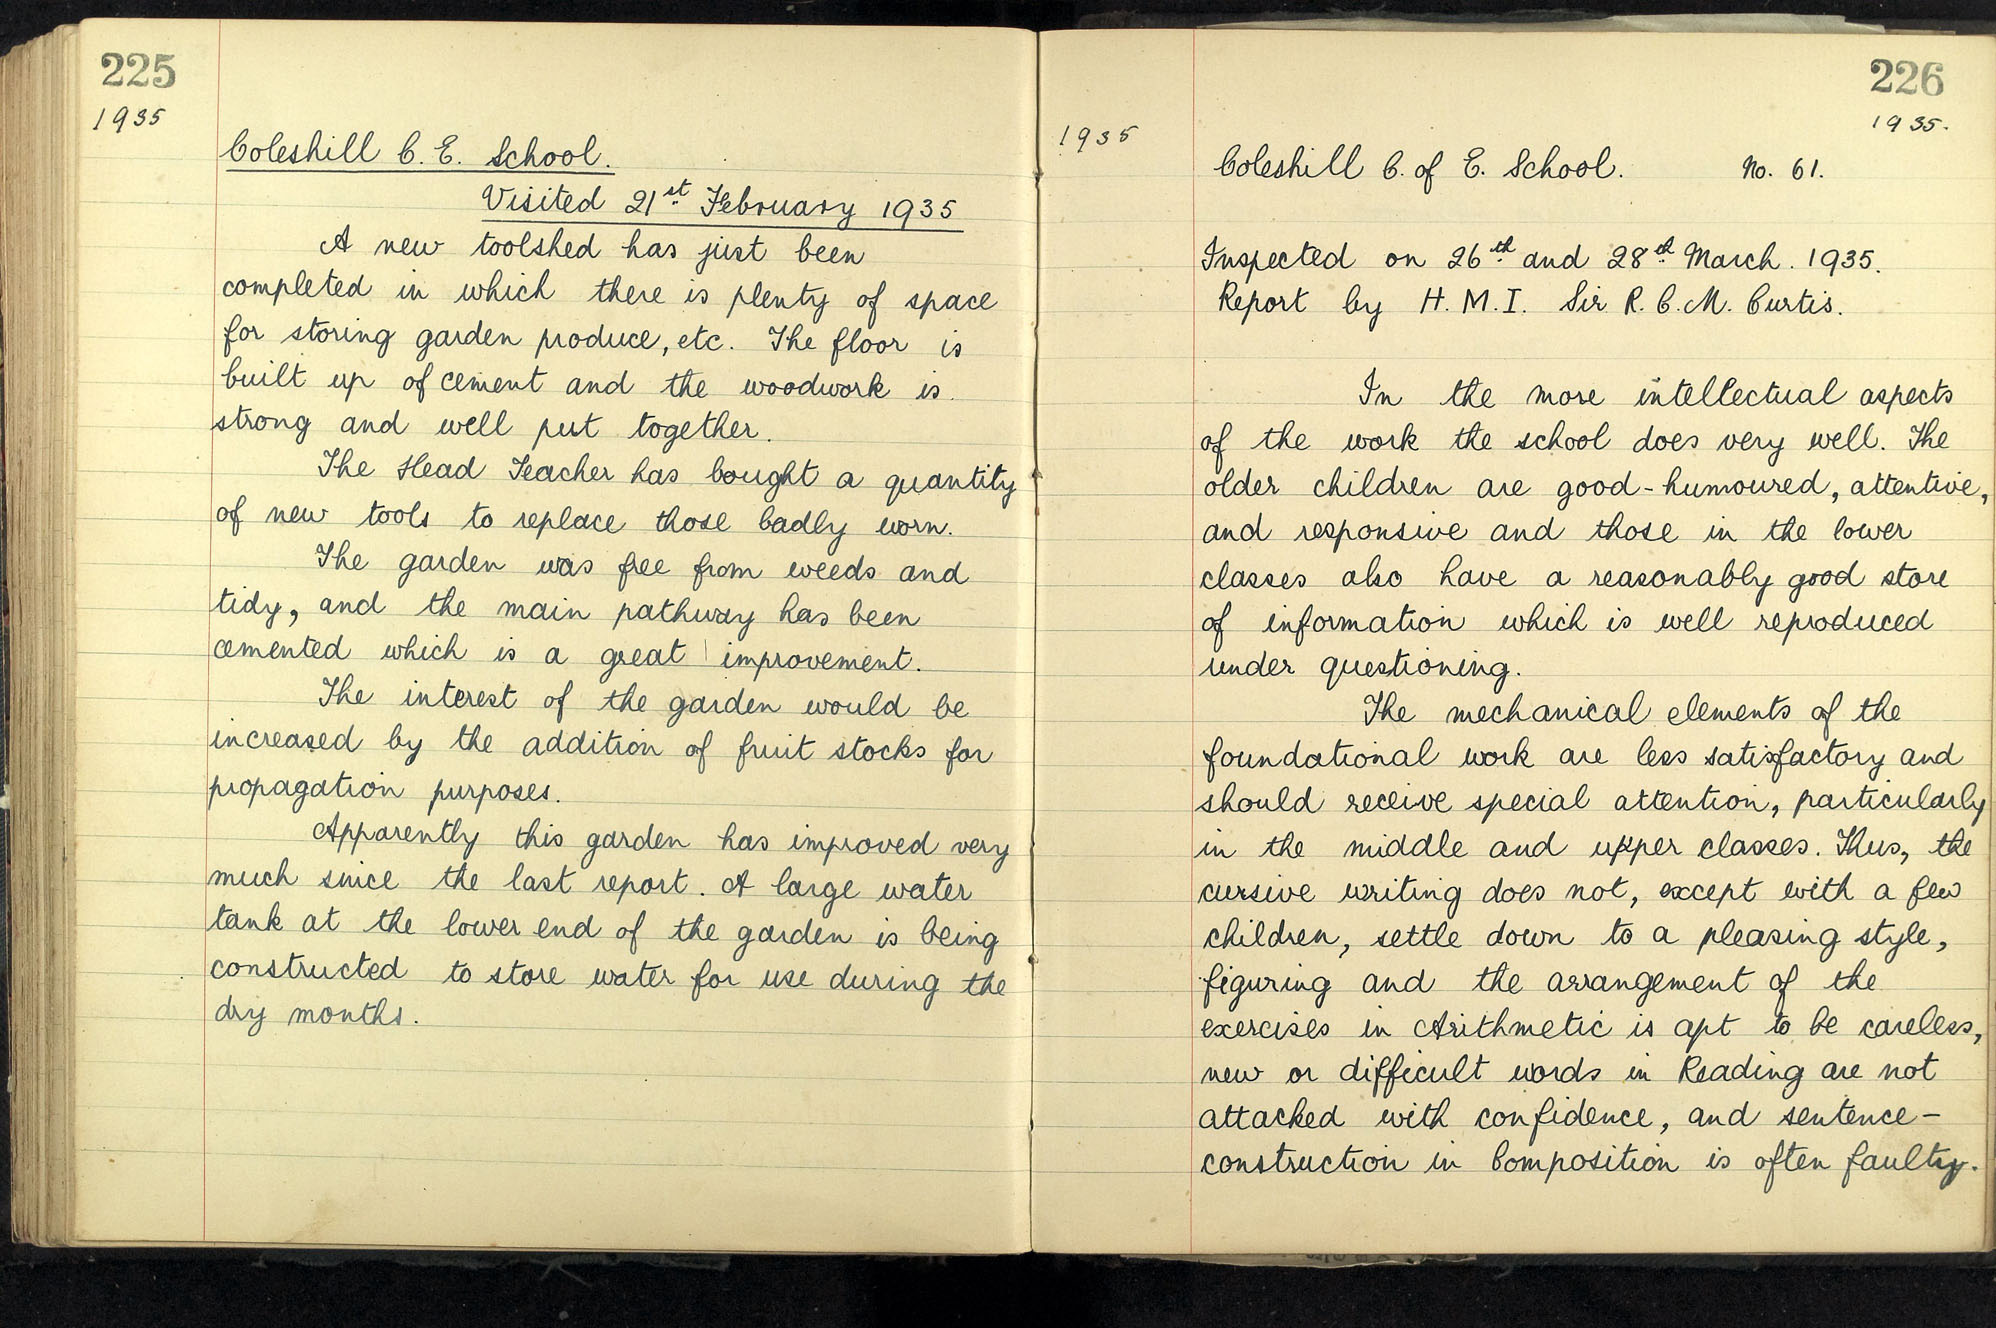 225
1935
Coleshill C. E. School.
Visited 21st February 1935
A new toolshed has just been
completed in which there is plenty of space
for storing garden produce, etc. The floor is
built up of cement and the woodwork is
strong and well put together.
The Head Teacher has bought a quantity
of new tools to replace those badly worn.
The garden was free from weeds and
tidy, and the main pathway has been
cemented which is a great improvement.
The interest of the garden would be
increased by the addition of fruit stocks for
propagation purposes.
Apparently this garden has improved very
much since the last report. A large water
tank at the lower end of the garden is being
constructed to store water for use during the
dry months.
226
1935
1935.
Coleshill C. of E. School. No. 61.
Inspected on 26th and 28th March. 1935.
Report by H. M. I. Sir R. C. M. Curtis.
In the more intellectual aspects
of the work the school does very well. The
older children are good-humoured, attentive,
and responsive and those in the lower
classes also have a reasonably good store
of information which is well reproduced
under questioning.
The mechanical elements of the
foundational work are less satisfactory and
should receive special attention, particularly
in the middle and upper classes. Thus, the
cursive writing does not, except with a few
children, settle down to a pleasing style,
figuring and the arrangement of the
exercises in Arithmetic is apt to be careless,
new or difficult words in Reading are not
attacked with confidence, and sentence-
construction in Composition is often faulty.